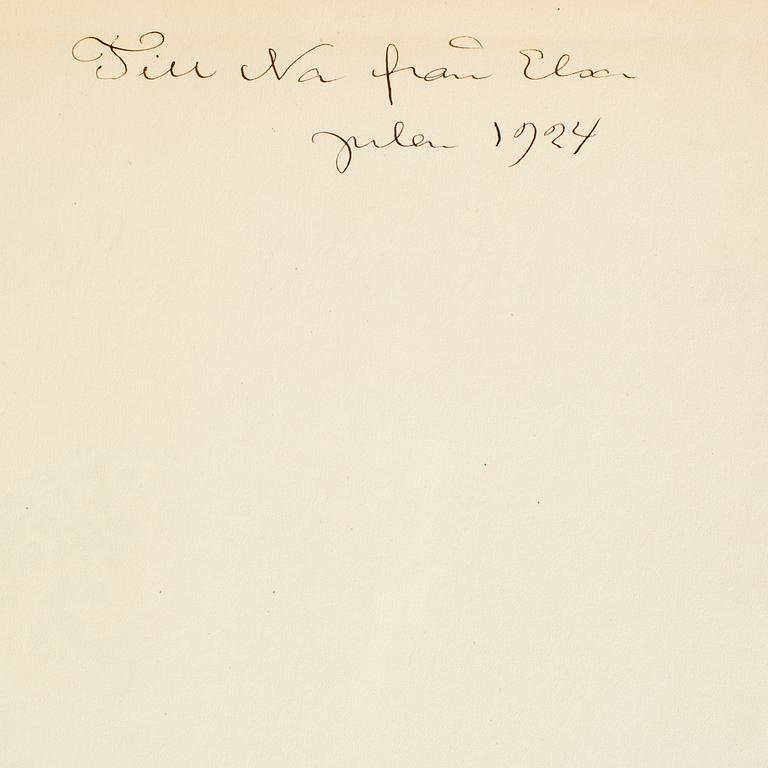 Till Na från Elsa
julen 1924